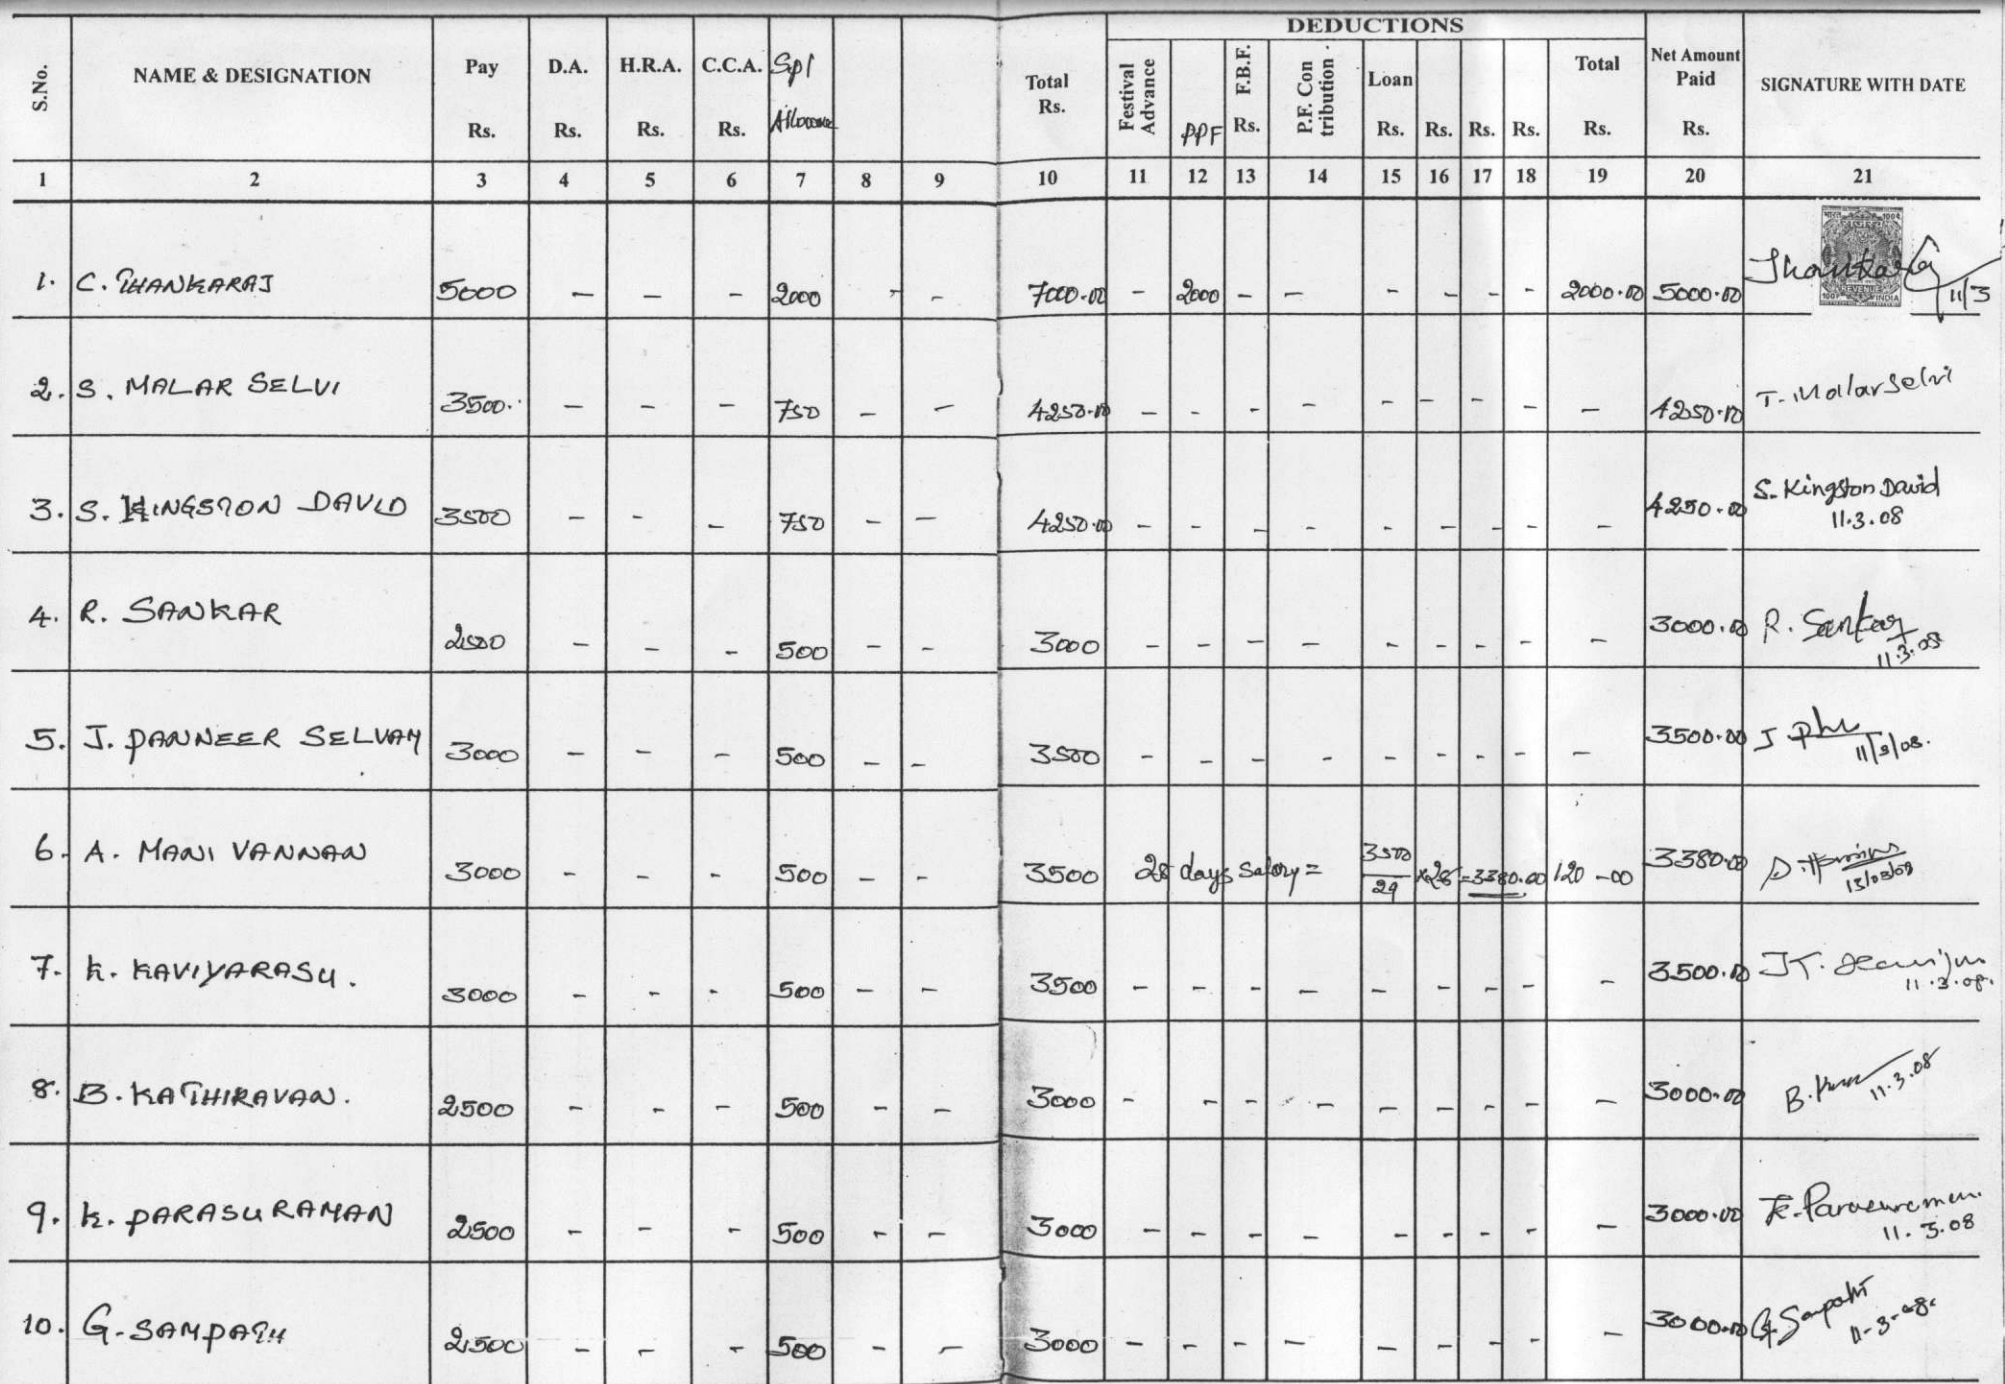 DEDUCTIONS
S.No. NAME & DESIGNATION Pay Rs. D.A. Rs. H.R.A. Rs. C.C.A. Rs. Spl Allowance Total Rs. Festival Advance PPF F.B.F. Rs. P.F. Con tribution. Loan Rs. Rs. Rs. Rs. Total Rs. Net Amount Paid Rs. SIGNATURE WITH DATE
1 2 3 4 5 6 7 8 9 10 11 12 13 14 15 16 17 18 19 20 21
1. C. THANKARAJ 5000 – – – 2000 – – 7000.00 – 2000 – – – – – – 2000.00 5000.00 Thankaraj 11/3
REVENUE INDIA
2. S. MALAR SELVI 3500. – – – 750 – – 4250.00 – – – – – – – – – 4250.00 T. Malarselvi
3. S. KINGSTON DAVID 3500 – – – 750 – – 4250.00 – – – – – – – – – 4250.00 S. Kingston David
11.3.08
4. R. SANKAR 2500 – – – 500 – – 3000 – – – – – – – – – 3000.00 R. Sankar
11.3.08
5. J. PANNEER SELVAM 3000 – – – 500 – – 3500 – – – – – – – – – 3500.00 J
11/3/08.
6. A. MANI VANNAN 3000 – – – 500 – – 3500 28 days salary = 3500/29 x28 =3380.00 120 -00 3380.00
13/03/08
7. K. KAVIYARASU. 3000 – – – 500 – – 3500 – – – – – – – – – 3500.00
11.3.08.
8. B. KATHIRAVAN. 2500 – – – 500 – – 3000 – – – – – – – – – 3000.00 B.
11.3.08
9. K. PARASURAMAN 2500 – – – 500 – – 3000 – – – – – – – – – 3000.00 K. Parasuraman.
11.3.08
10. G. SAMPATH 2500 – – – 500 – – 3000 – – – – – – – – – 3000.00 G. Sampath
11-3-08.